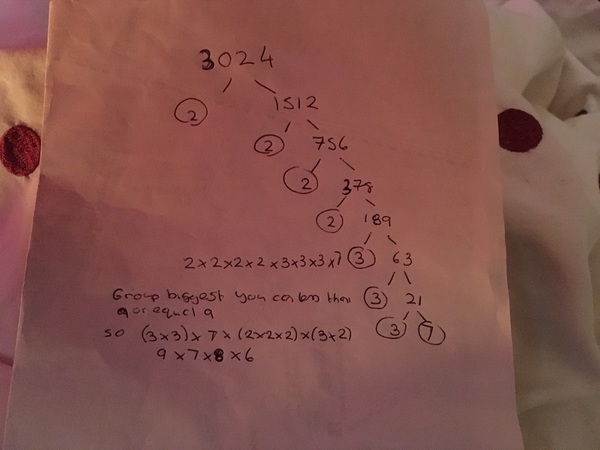 3024
2 1512
2 756
2 378
2 189
2×2×2×2×3×3×3×7 3 63
Group biggest you can less than 3 21
9 or equal 9
so (3×3)×7×(2×2×2)×(3×2) 3 7
9×7×8×6